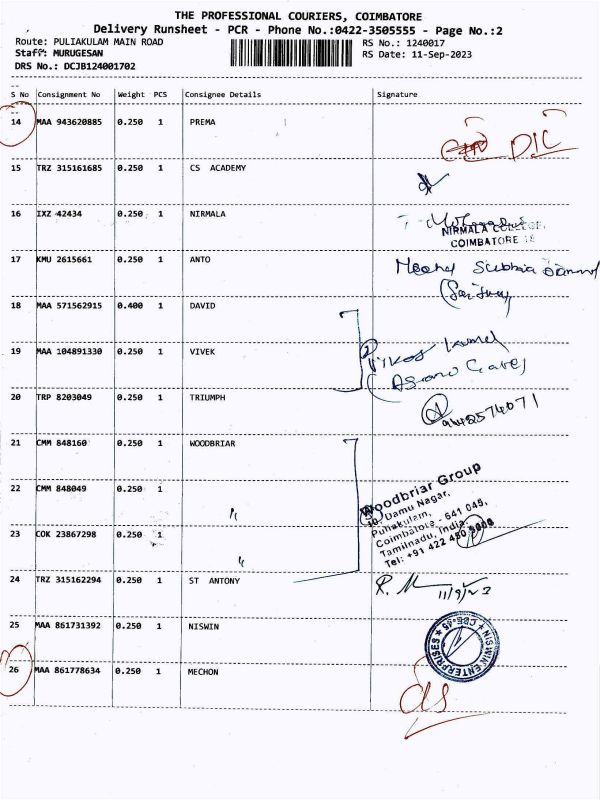 THE PROFESSIONAL COURIERS, COIMBATORE
Delivery Runsheet - PCR - Phone No.:0422-3505555 - Page No.:2
Route: PULIAKULAM MAIN ROAD RS No.: 1240017
Staff: MURUGESAN RS Date: 11-Sep-2023
DRS No.: DCJB124001702
S No Consignment No Weight PCS Consignee Details Signature
14 MAA 943620885 0.250 1 PREMA D/C
15 TRZ 315161685 0.250 1 CS ACADEMY
16 IXZ 42434 0.250 1 NIRMALA
NIRMALA COLLEGE,
COIMBATORE 18
17 KMU 2615661 0.250 1 ANTO
18 MAA 571562915 0.400 1 DAVID
19 MAA 104891330 0.250 1 VIVEK
20 TRP 8203049 0.250 1 TRIUMPH
21 CMM 848160 0.250 1 WOODBRIAR
22 CMM 848049 0.250 1 "
Woodbriar Group
10, Damu Nagar,
Puliakulam,
Coimbatore - 641 045,
Tamilnadu, India.
23 COK 23867298 0.250 1 "
24 TRZ 315162294 0.250 1 ST ANTONY
11/9/23
25 MAA 861731392 0.250 1 NISWIN
NISWIN ENTERPRISES ★ CBE-45 ★
26 MAA 861778634 0.250 1 MECHON